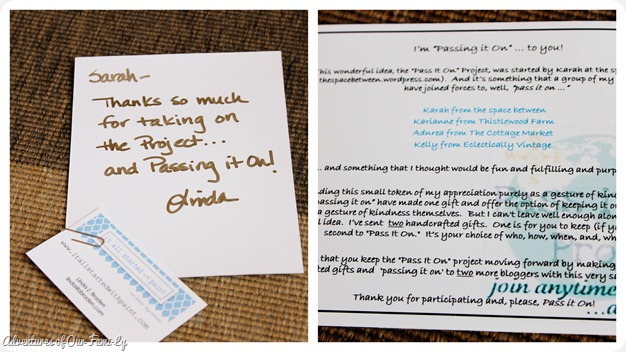 Sarah-
Thanks so much
for taking on
the Project...
and Passing it On!
Linda
it all started with paint
www.itallstartedwithpaint.com
I'm "Passing it On" ... to you!
this wonderful idea, the "Pass It On" Project, was started by Karah at the sp
thespacebetween.wordpress.com). And it's something that a group of my
have joined forces to, well, "pass it on ..."
Karah from the space between
Karianne from Thistlewood Farm
Adnrea from The Cottage Market
Kelly from Eclectically Vintage
... and something that I thought would be fun and fulfilling and purp
ding this small token of my appreciation purely as a gesture of kind
passing it on" have made one gift and offer the option of keeping it o
a gesture of kindness themselves. But I can't leave well enough alone
l idea. I've sent two handcrafted gifts. One is for you to keep (if yo
second to "Pass It On." It's your choice of who, how, when, and, wh
that you keep the "Pass It On" project moving forward by making
ted gifts and 'passing it on' to two more bloggers with this very sa
join anytime
Thank you for participating and, please, Pass it On!
...a
Adventures of Our Fami-Ly